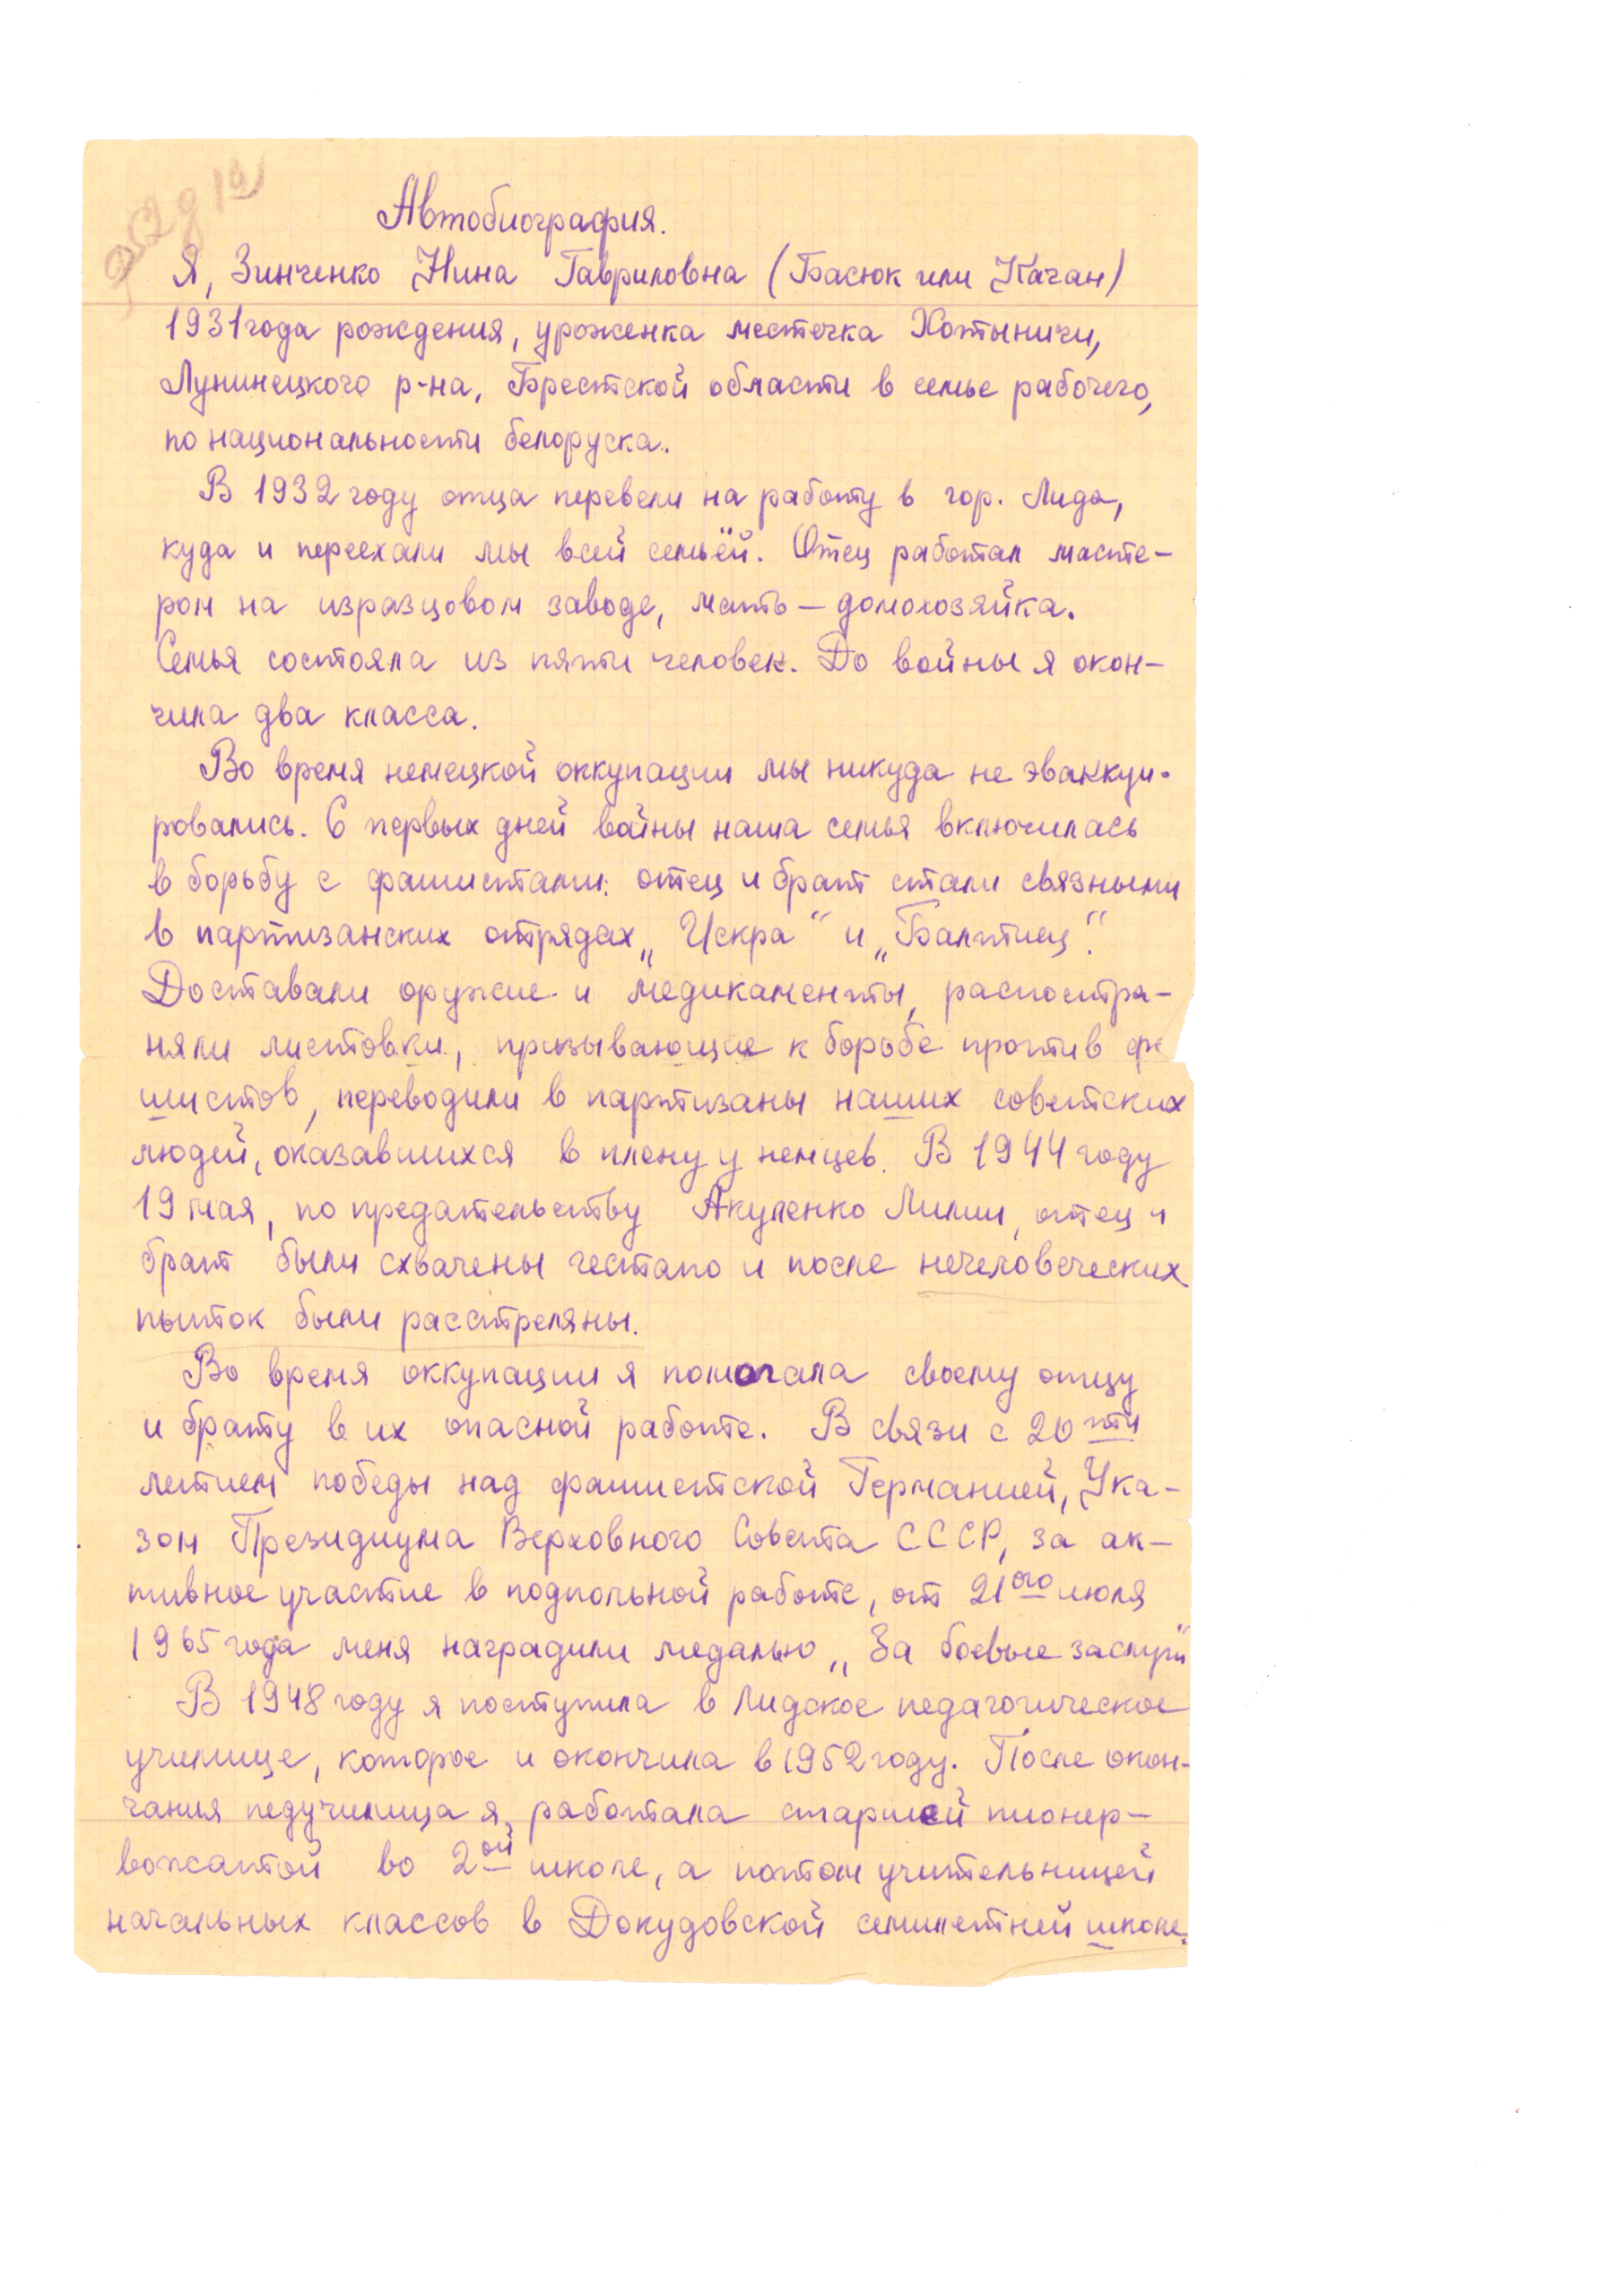 Автобиография.
Я, Зинченко Нина Гавриловна (Басюк или Качан)
1931 года рождения, уроженка местечка Хотыничи,
Лунинецкого р-на, Брестской области в семье рабочего,
по национальности белоруска.
В 1932 году отца перевели на работу в гор. Лида,
куда и переехали мы всей семьёй. Отец работал масте-
ром на изразцовом заводе, мать — домохозяйка.
Семья состояла из пяти человек. До войны я окон-
чила два класса.
Во время немецкой оккупации мы никуда не эваккуи-
ровались. С первых дней войны наша семья включилась
в борьбу с фашистами: отец и брат стали связными
в партизанских отрядах „Искра“ и „Балтиец“.
Доставали оружие и медикаменты, распостра-
няли листовки, призывающие к борьбе против фа
шистов, переводили в партизаны наших советских
людей, оказавшихся в плену у немцев. В 1944 году
19 мая, по предательству Акуленко Лилии, отец и
брат были схвачены гестапо и после нечеловеческих
пыток были расстреляны.
Во время оккупации я помогала своему отцу
и брату в их опасной работе. В связи с 20 ти
летием победы над фашистской Германией, Ука-
зом Президиума Верховного Совета СССР, за ак-
тивное участие в подпольной работе, от 21ого июля
1965 года меня наградили медалью „За боевые заслуги“
В 1948 году я поступила в Лидское педагогическое
училище, которое и окончила в 1952 году. После окон-
чания педучилища я, работала старшей пионер-
вожатой во 2ой школе, а потом учительницей
начальных классов в Докудовской семилетней школе.